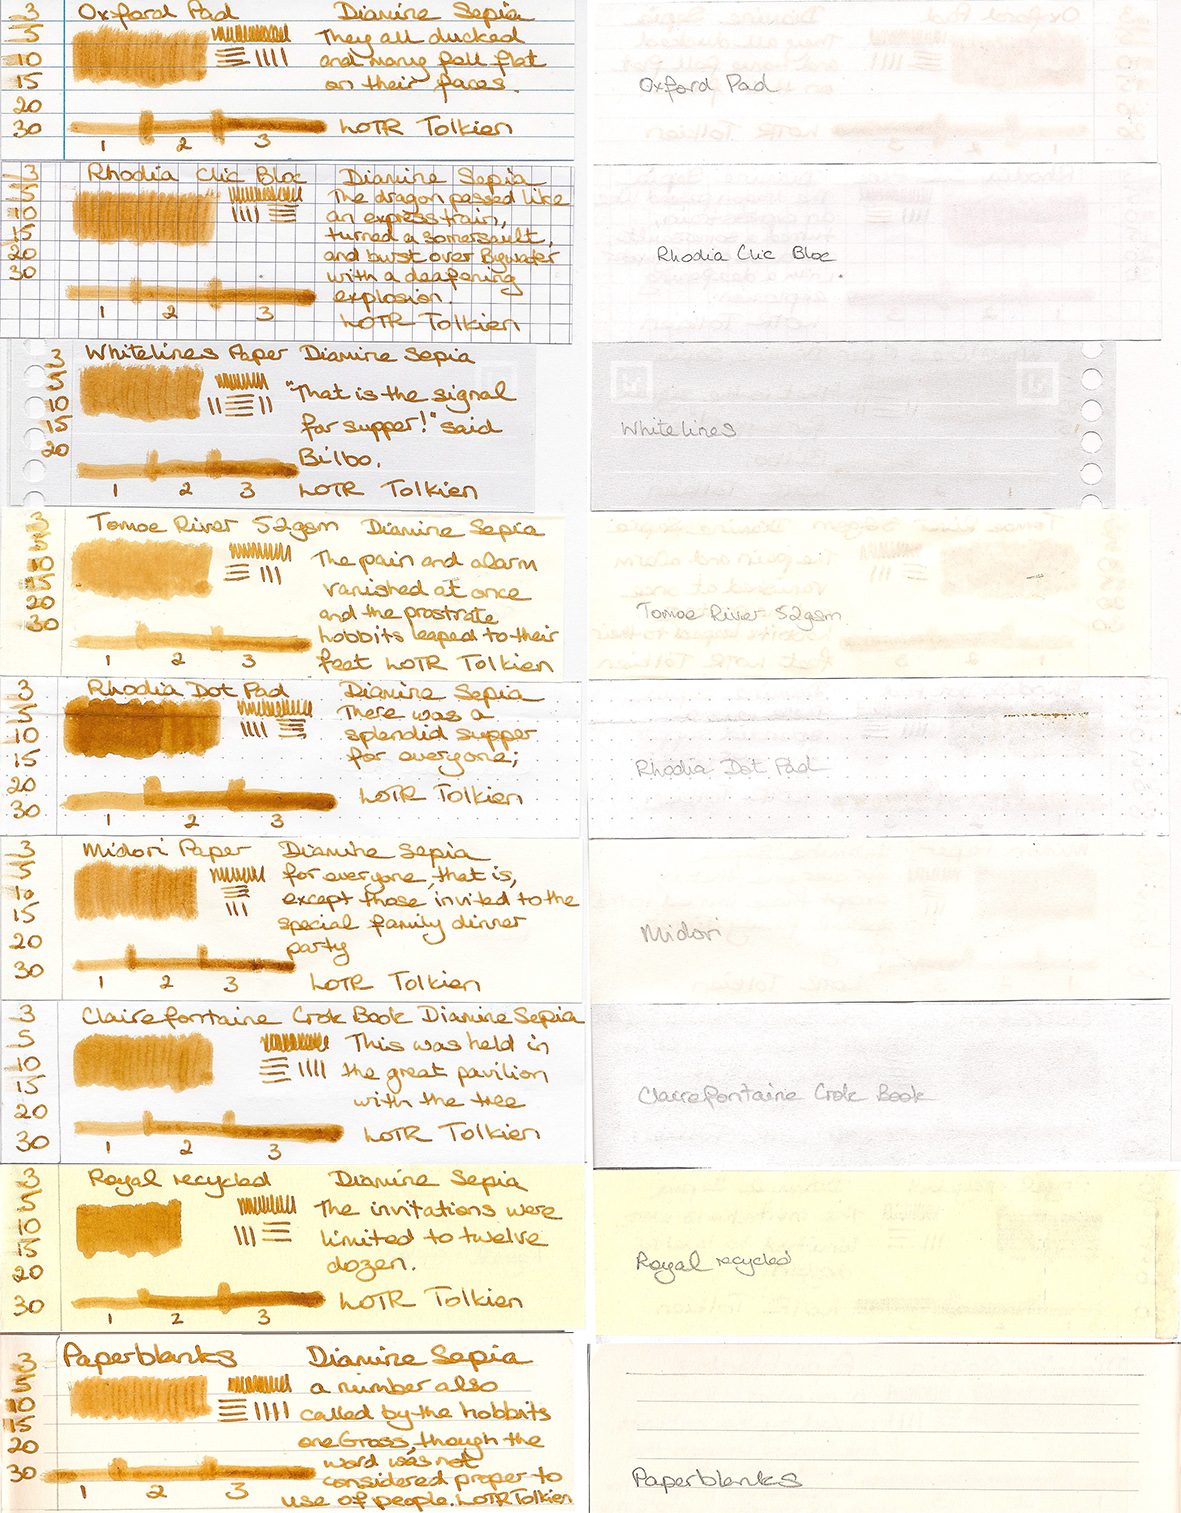 3
5
10
15
20
30
Oxford Pad
Diamine Sepia
They all ducked
and many fell flat
on their faces.
LOTR Tolkien
1 2 3
Oxford Pad
3
5
10
15
20
30
Rhodia Clic Bloc
Diamine Sepia
The dragon passed like
an express train,
turned a somersault,
and burst over Bywater
with a deafening
explosion.
LOTR Tolkien
1 2 3
Rhodia Clic Bloc
3
5
10
15
20
Whitelines Paper Diamine Sepia
"That is the signal
for supper!" said
Bilbo.
LOTR Tolkien
1 2 3
Whitelines
3
5
10
15
20
30
Tomoe River 52gsm Diamine Sepia
The pain and alarm
vanished at once
and the prostrate
hobbits leaped to their
feet LOTR Tolkien
1 2 3
Tomoe River 52gsm
3
5
10
15
20
30
Rhodia Dot Pad
Diamine Sepia
There was a
splendid supper
for everyone;
LOTR Tolkien
1 2 3
Rhodia Dot Pad
3
5
10
15
20
30
Midori Paper
Diamine Sepia
for everyone, that is,
except those invited to the
special family dinner
party
LOTR Tolkien
1 2 3
Midori
3
5
10
15
20
30
Clairefontaine Crok Book Diamine Sepia
This was held in
the great pavilion
with the tree
LOTR Tolkien
1 2 3
Clairefontaine Crok Book
3
5
10
15
20
30
Royal recycled
Diamine Sepia
The invitations were
limited to twelve
dozen.
LOTR Tolkien
1 2 3
Royal recycled
3
5
10
15
20
30
Paperblanks
Diamine Sepia
a number also
called by the hobbits
one Gross, though the
word was not
considered proper to
use of people. LOTR Tolkien
1 2 3
Paperblanks